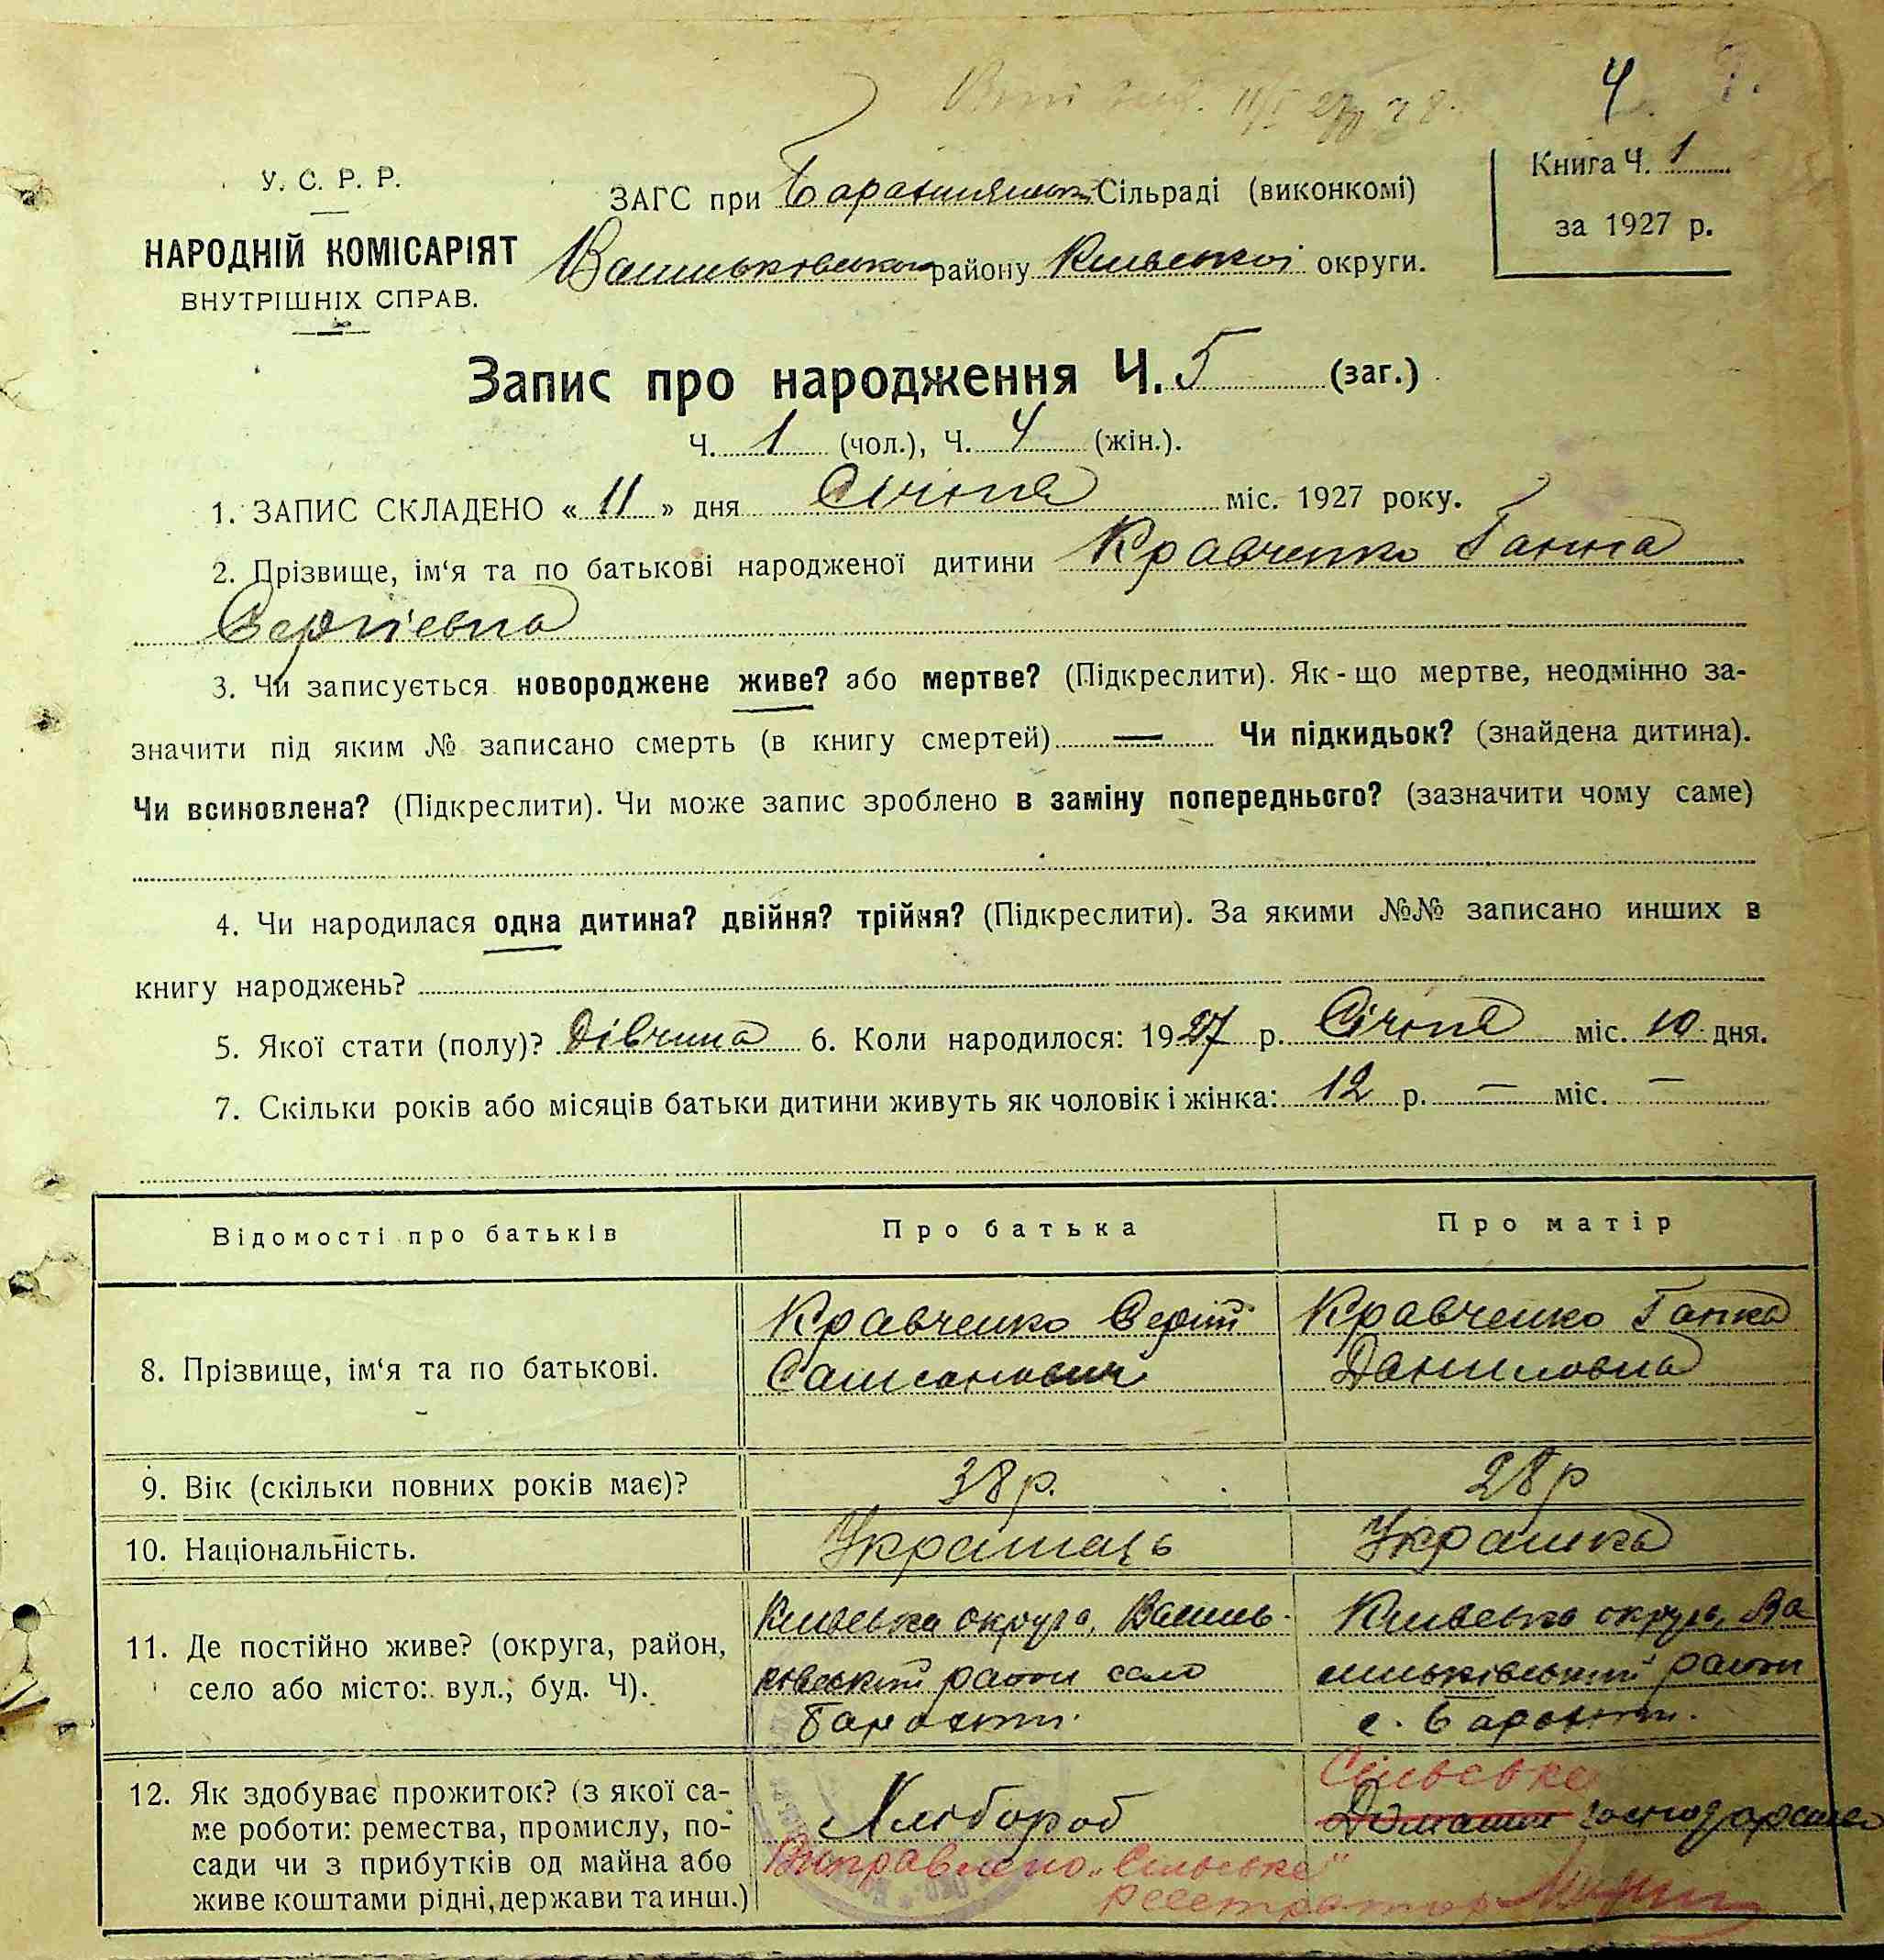 4
У. С. Р. Р.
НАРОДНІЙ КОМІСАРІЯТ
ВНУТРІШНІХ СПРАВ.
ЗАГС при Сільраді (виконкомі)
Васильківського району Київської округи.
Книга Ч. 1
за 1927 р.
Запис про народження Ч. 5 (заг.)
Ч. 1 (чол.), Ч. 4 (жін.).
1. ЗАПИС СКЛАДЕНО « 11 » дня Січня міс. 1927 року.
2. Прізвище, ім‘я та по батькові народженої дитини Кравченко Ганна
Сергієвна
3. Чи записується новороджене живе? або мертве? (Підкреслити). Як-що мертве, неодмінно за-
значити під яким № записано смерть (в книгу смертей) — Чи підкидьок? (знайдена дитина).
Чи всиновлена? (Підкреслити). Чи може запис зроблено в заміну попереднього? (зазначити чому саме)
4. Чи народилася одна дитина? двійня? трійня? (Підкреслити). За якими №№ записано инших в
книгу народжень?
5. Якої стати (полу)? Дівчина 6. Коли народилося: 1927 р. Січня міс. 10 дня.
7. Скільки років або місяців батьки дитини живуть як чоловік і жінка: 12 р. — міс. —
Відомості про батьків Про батька Про матір
8. Прізвище, ім‘я та по батькові.
Кравченко Сергій
Самсонович
Кравченко Ганна
Даниловна
9. Вік (скільки повних років має)? 38 р. 28 р
10. Національність. Українець Українка
11. Де постійно живе? (округа, район,
село або місто: вул., буд. Ч).
Київська округа, Василь-
ківський район село
Барахти.
Київська округа, Ва
сильківський район
с. Барахти.
12. Як здобуває прожиток? (з якої са-
ме роботи: ремества, промислу, по-
сади чи з прибутків од майна або
живе коштами рідні, держави та инш.)
Хлібороб
Сільське
Домашнє господарство
Виправлено „Сільське"
реєстратор